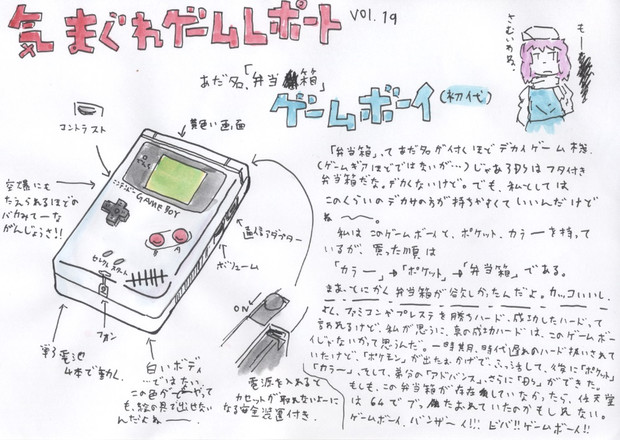 気まぐれゲームレポート
vol.19
あだ名、「弁当箱」
ゲームボーイ(初代)
もー
さむいわね。
コントラスト
黄色い画面
空爆にも
たえられるほどの
バカみてーな
がんじょうさ!!
ニンテンドー GAME BOY
セレクト スタート
B A
通信アダプター
ボリューム
フォン
単3電池
4本で動く。
白いボディ
…ではない。
この色がどーやっ
ても、絵の具で出せない
んだよねー。
ON
電源を入れると
カセットが取れないよーに
なる安全装置付き。
「弁当箱」ってあだ名がイ付くほどデカイゲーム機。
(ゲームギアほどではないが…)じゃあDSはフタ付き
弁当箱だな。デカくないけど。でも、私としては
このくらいのデカサの方が持ちやすくていいんだけど
ねー。
私は、このゲームボーイと、ポケット、カラーを持って
いるが、買った順は
「カラー」→「ポケット」→「弁当箱」である。
まあーとにかく弁当箱が欲しかったんだよ。カッコいいし。
よく、ファミコンがプレステを勝ちハード、成功したハードって
言われるけど、私が思うに、真の成功ハードは、このゲームボー
イじゃないかって思うんだ。一時期、時代遅れのハード扱いされて
いたけど、「ポケモン」が出たおかげで、ふっ活して、後に「ポケット」
「カラー」、そして、弟分の「アドバンス」、さらに「DS」ができた。
もしも、この弁当箱が存在していなかったら、任天堂
は64でブッたおれていたのかもしれない。
ゲームボーイ、バンザーイ!!ビバ!!ゲームボーイ!!